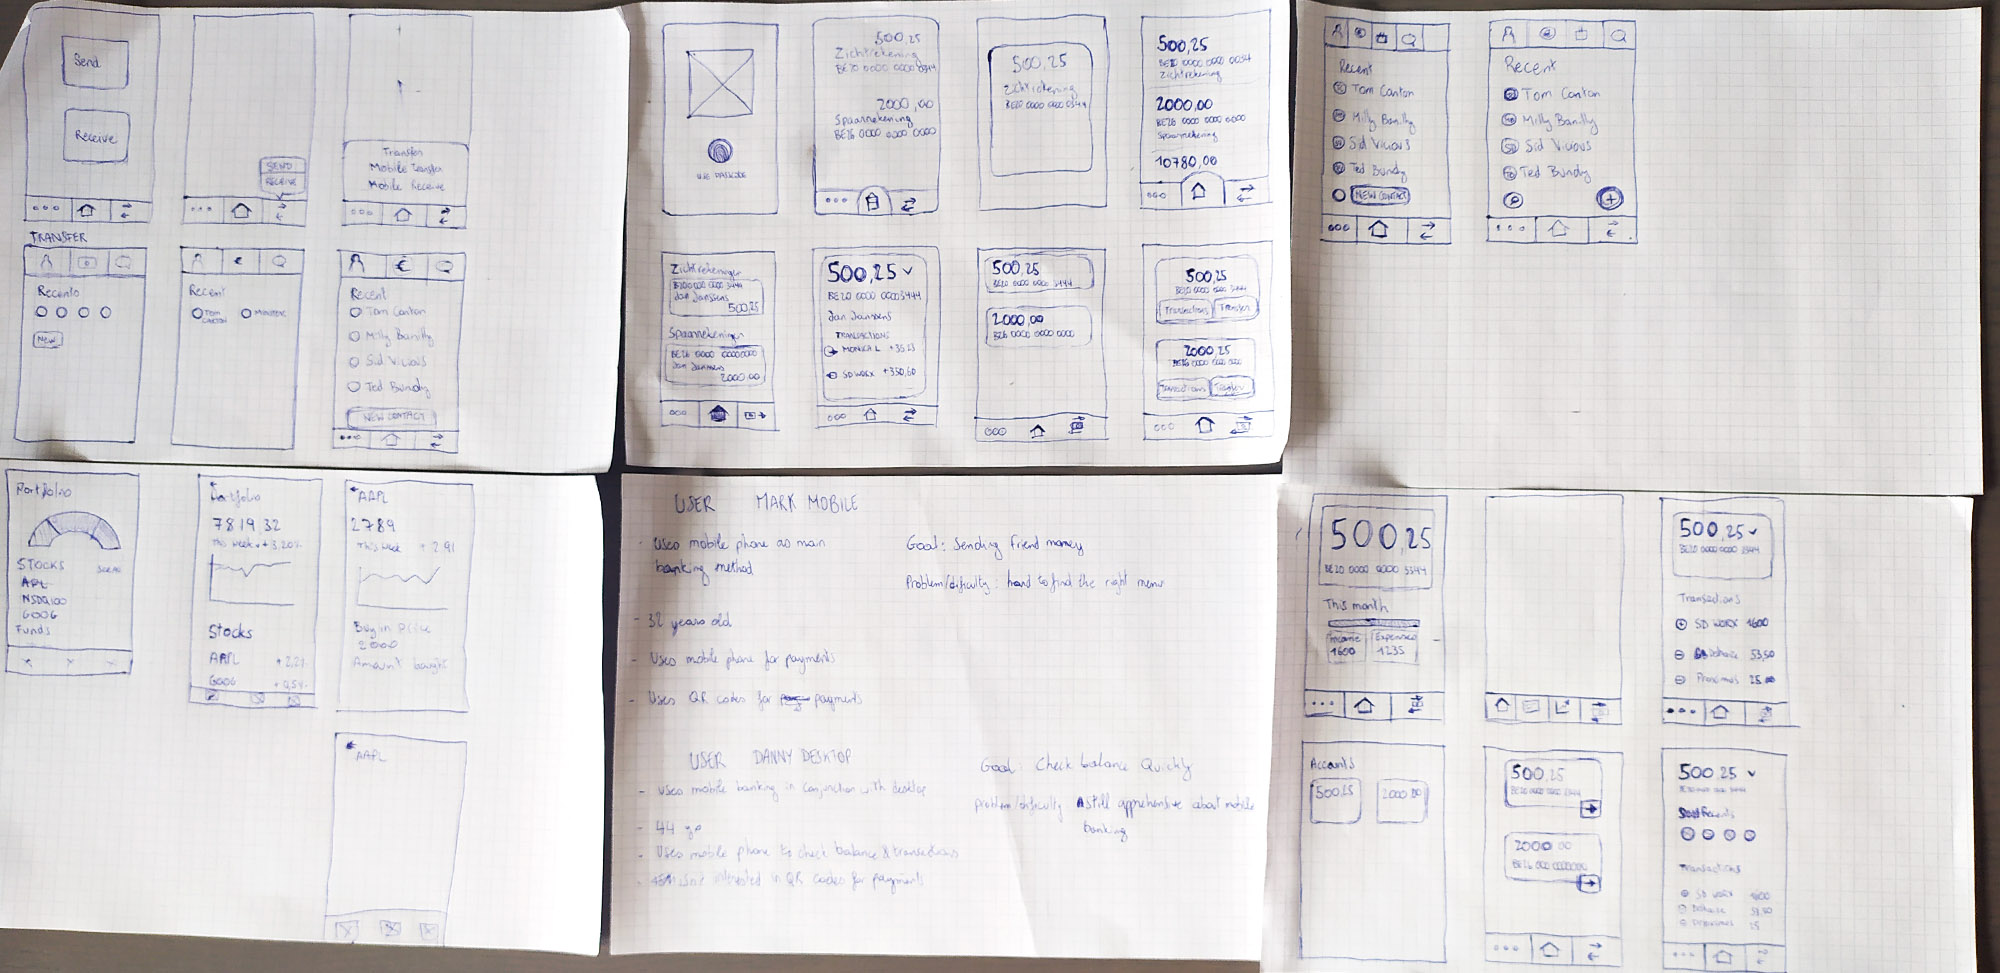 Send
Receive
SEND
RECEIVE
Transfer
Mobile Transfer
Mobile Receive
TRANSFER
Recents
New
Recent
TOM
CANTON
Recent
Tom Canton
Milly Banilly
Sid Vicious
Ted Bundy
NEW CONTACT
USE PASSCODE
500,25
Zichtrekening
BE20 0000 0000 3444
2000,00
Spaarrekening
BE26 0000 0000 0000
500,25
Zichtrekening
BE20 0000 0000 3444
500,25
Zichtrekening
2000,00
BE26 0000 0000 0000
Spaarrekening
10780,00
Zichtrekeningen
Jan Janssens
500,25
Spaarrekeningen
BE26 0000 00000000
Jan Janssens
2000,00
500,25
BE20 0000 0000 3444
Jan Janssens
TRANSACTIONS
MONICA L
SD WORX +350,60
500,25
BE20 0000 0000 3444
2000,00
BE26 0000 0000 0000
500,25
BE20 0000 0000 3444
Transactions Transfer
2000,25
BE26 0000 0000 0000
Transactions Transfer
Recent
Tom Canton
Milly Banilly
Sid Vicious
Ted Bundy
NEW CONTACT
Recent
Tom Canton
Milly Banilly
Sid Vicious
Ted Bundy
Portfolio
STOCKS
NSDQ100
GOOG
Funds
Portfolio
7819,32
This week + 3,20%
Stocks
AAPL + 2,2%
GOOG + 0,54%
AAPL
2789
This week + 2,91
Buy in price
2000
Amount bought
AAPL
USER MARK MOBILE
- Uses mobile phone as main
banking method
- 32 years old
- Uses mobile phone for payments
- Uses QR codes for payments
Goal: Sending friend money
Problem/dificulty: hard to find the right menu
USER DANNY DESKTOP
- Uses mobile banking in conjunction with desktop
- 44 yo
- Uses mobile phone to check balance & transactions
- isn't interested in QR codes for payments
Goal: Check balance Quickly
problem/dificulty Still apprehensive about mobile
banking
500,25
BE20 0000 0000 3444
This month
Income
1600
Expenses
1235
500,25
BE20 0000 0000 3444
Transactions
SD WORX 1600
Delhaize 53,50
Proximus 25
Accounts
500,25
2000,00
500,25
BE20 0000 0000 3444
2000,00
BE26 0000 00000000
500,25
Transactions
SD WORX 1600
Delhaize 53,50
Proximus 25